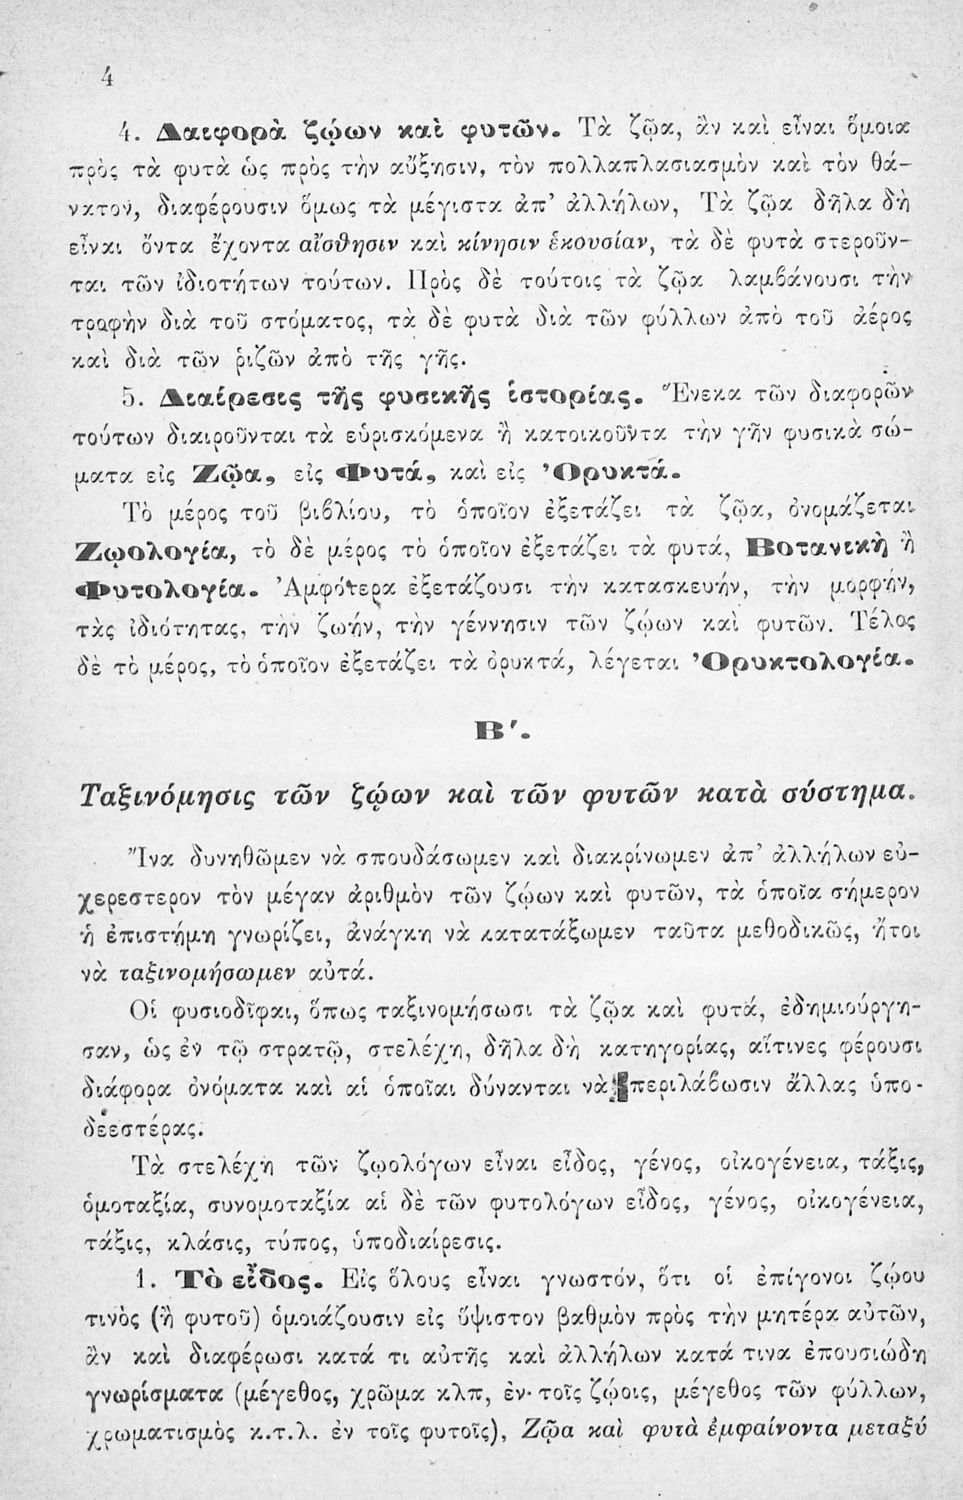 4
4. Διαφορὰ ζῴων καὶ φυτῶν. Τὰ ζῷα, ἂν καὶ εἶναι ὅμοια
πρὸς τὰ φυτὰ ὡς πρὸς τὴν αὔξησιν, τὸν πολλαπλασιασμὸν καὶ τὸν θά-
νατον, διαφέρουσιν ὅμως τὰ μέγιστα ἀπ’ ἀλλήλων, Τὰ ζῷα δῆλα δὴ
εἶναι ὄντα ἔχοντα αἴσθησιν καὶ κίνησιν ἑκουσίαν, τὰ δὲ φυτὰ στεροῦν-
ται τῶν ἰδιοτήτων τούτων. Πρὸς δὲ τούτοις τὰ ζῷα λαμβάνουσι τὴν
τροφὴν διὰ τοῦ στόματος, τὰ δὲ φυτὰ διὰ τῶν φύλλων ἀπὸ τοῦ ἀέρος
καὶ διὰ τῶν ῥιζῶν ἀπὸ τῆς γῆς.
5. Διαίρεσις τῆς φυσικῆς ἱστορίας. Ἕνεκα τῶν διαφορῶν
τούτων διαιροῦνται τὰ εὑρισκόμενα ἢ κατοικοῦντα τὴν γῆν φυσικὰ σώ-
ματα εἰς Ζῷα, εἰς Φυτά, καὶ εἰς Ὀρυκτά.
Τὸ μέρος τοῦ βιβλίου, τὸ ὁποῖον ἐξετάζει τὰ ζῷα, ὀνομάζεται
Ζῳολογία, τὸ δὲ μέρος τὸ ὁποῖον ἐξετάζει τὰ φυτά, Βοτανικὴ ἢ
Φυτολογία. Ἀμφότερα ἐξετάζουσι τὴν κατασκευήν, τὴν μορφήν,
τὰς ἰδιότητας, τὴν ζωήν, τὴν γέννησιν τῶν ζῴων καὶ φυτῶν. Τέλος
δὲ τὸ μέρος, τὸ ὁποῖον ἐξετάζει τὰ ὀρυκτά, λέγεται Ὀρυκτολογία.
Β′.
Ταξινόμησις τῶν ζῴων καὶ τῶν φυτῶν κατὰ σύστημα.
Ἵνα δυνηθῶμεν νὰ σπουδάσωμεν καὶ διακρίνωμεν ἀπ’ ἀλλήλων εὐ-
χερεστερον τὸν μέγαν ἀριθμὸν τῶν ζῴων καὶ φυτῶν, τὰ ὁποῖα σήμερον
ἡ ἐπιστήμη γνωρίζει, ἀνάγκη νὰ κατατάξωμεν ταῦτα μεθοδικῶς, ἤτοι
νὰ ταξινομήσωμεν αὐτά.
Οἱ φυσιοδῖφαι, ὅπως ταξινομήσωσι τὰ ζῷα καὶ φυτά, ἐδημιούργη-
σαν, ὡς ἐν τῷ στρατῷ, στελέχη, δῆλα δὴ κατηγορίας, αἵτινες φέρουσι
διάφορα ὀνόματα καὶ αἱ ὁποῖαι δύνανται νὰ περιλάβωσιν ἄλλας ὑπο-
δεεστέρας.
Τὰ στελέχη τῶν ζῳολόγων εἶναι εἶδος, γένος, οἰκογένεια, τάξις,
ὁμοταξία, συνομοταξία αἱ δὲ τῶν φυτολόγων εἶδος, γένος, οἰκογένεια,
τάξις, κλάσις, τύπος, ὑποδιαίρεσις.
1. Τὸ εἶδος. Εἰς ὅλους εἶναι γνωστόν, ὅτι οἱ ἐπίγονοι ζῴου
τινὸς (ἢ φυτοῦ) ὁμοιάζουσιν εἰς ὕψιστον βαθμὸν πρὸς τὴν μητέρα αὐτῶν,
ἂν καὶ διαφέρωσι κατά τι αὐτῆς καὶ ἀλλήλων κατά τινα ἐπουσιώδη
γνωρίσματα (μέγεθος, χρῶμα κλπ, ἐν τοῖς ζῴοις, μέγεθος τῶν φύλλων,
χρωματισμὸς κ.τ.λ. ἐν τοῖς φυτοῖς), Ζῷα καὶ φυτὰ ἐμφαίνοντα μεταξύ